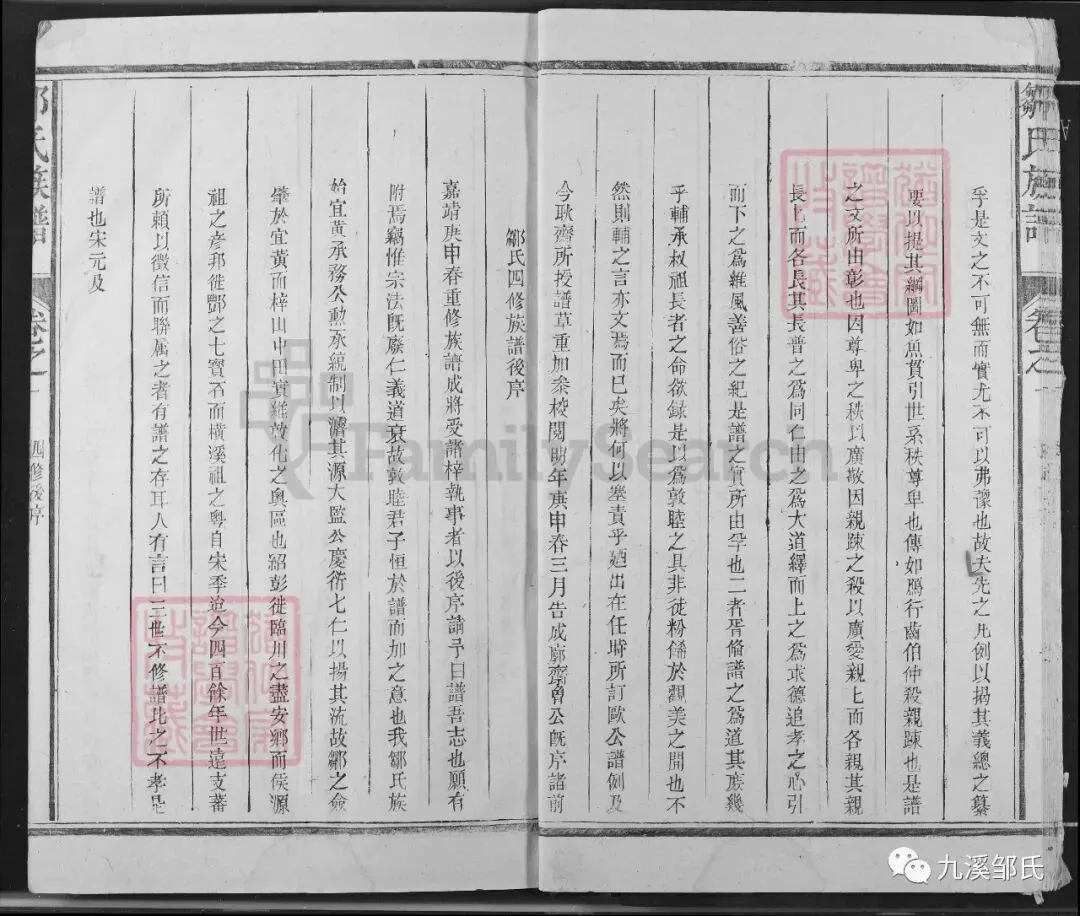 鄒氏族譜
卷之一
孚是文之不可無而實尤不可以弗讓也故夫先之凡例以揭其義總之纂
要以提其綱圖如魚貫引世系秩尊卑也傳如鴈行齒伯仲殺親踈也是譜
之文所由彰也因尊卑之秩以廣敬因親踈之殺以廣愛親上而各親其親
長上而各長其長普之為同仁由之為大道繹而上之為求德追孝之心引
而下之為維風善俗之紀是譜之實所由罕也二者胥脩譜之為道其庶幾
乎輔承叔祖長者之命欲録是以為敦睦之具非徒粉餙於觀美之開也不
然則輔之言亦文焉而已矣將何以塞責乎廼出在任時所訂歐公譜例及
今耿齋所授譜草重加叅校閱明年庚申春三月告成
鄒氏四修族譜後序
嘉靖庚申春重修族譜成將受諸梓執事者以後序請予曰譜吾志也願有
附焉竊惟宗法既廢仁義道衰故敦睦君子恒於譜而加之意也我鄒氏族
始宜黃承務公勲承統制以濬其源大監公慶衍七仁以揚其流故鄒之僉
肇於宜黃而梓山中田實維敦化之奥區也紹彭徙臨川之盡安鄉而侯源
祖之彦邦徙酆之七寶石而橫溪祖之粤自宋季迨今四百餘年世遠支蕃
所賴以徵信而聯属之者有譜之存耳人有言曰三世不修譜比之不孝是
譜也宋元及
鄒氏族譜
卷之一
四修後序
FamilySearch
九溪邹氏